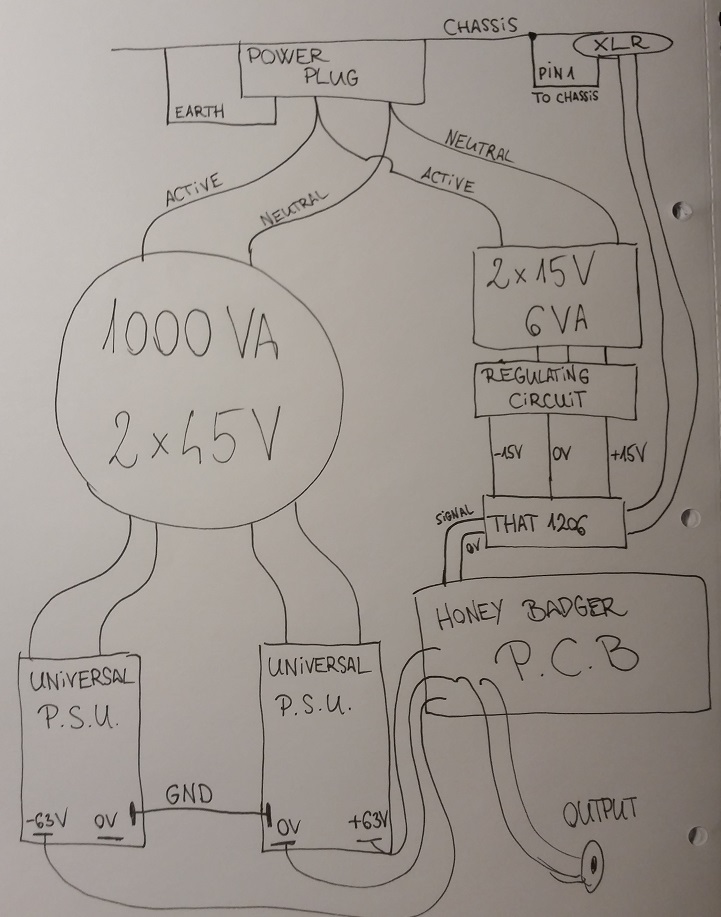 CHASSIS
XLR
POWER
PLUG
PIN 1
TO CHASSIS
EARTH
NEUTRAL
ACTIVE
ACTIVE
NEUTRAL
2x15V
6VA
1000 VA
2x45V
REGULATING
CIRCUIT
-15V
0V
+15V
SIGNAL
THAT 1206
0V
HONEY BADGER
P.C.B
UNIVERSAL
P.S.U.
UNIVERSAL
P.S.U.
GND
-63V
0V
0V
+63V
OUTPUT